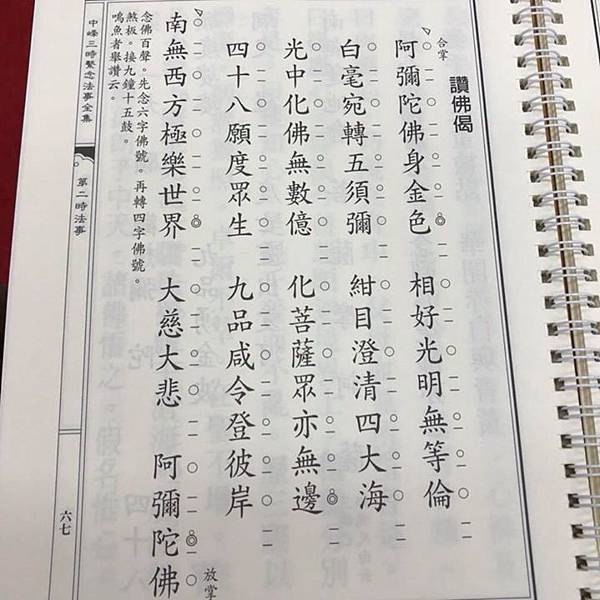 讚佛偈
合掌
阿彌陀佛身金色 相好光明無等倫
白毫宛轉五須彌 紺目澄清四大海
光中化佛無數億 化菩薩眾亦無邊
四十八願度眾生 九品咸令登彼岸
南無西方極樂世界 大慈大悲 阿彌陀佛
放掌
念佛百聲。先念六字佛號。再轉四字佛號。
煞板。接九鐘十五鼓。
鳴魚者舉讚云。
中峰三時繫念法事全集
第二時法事
六七